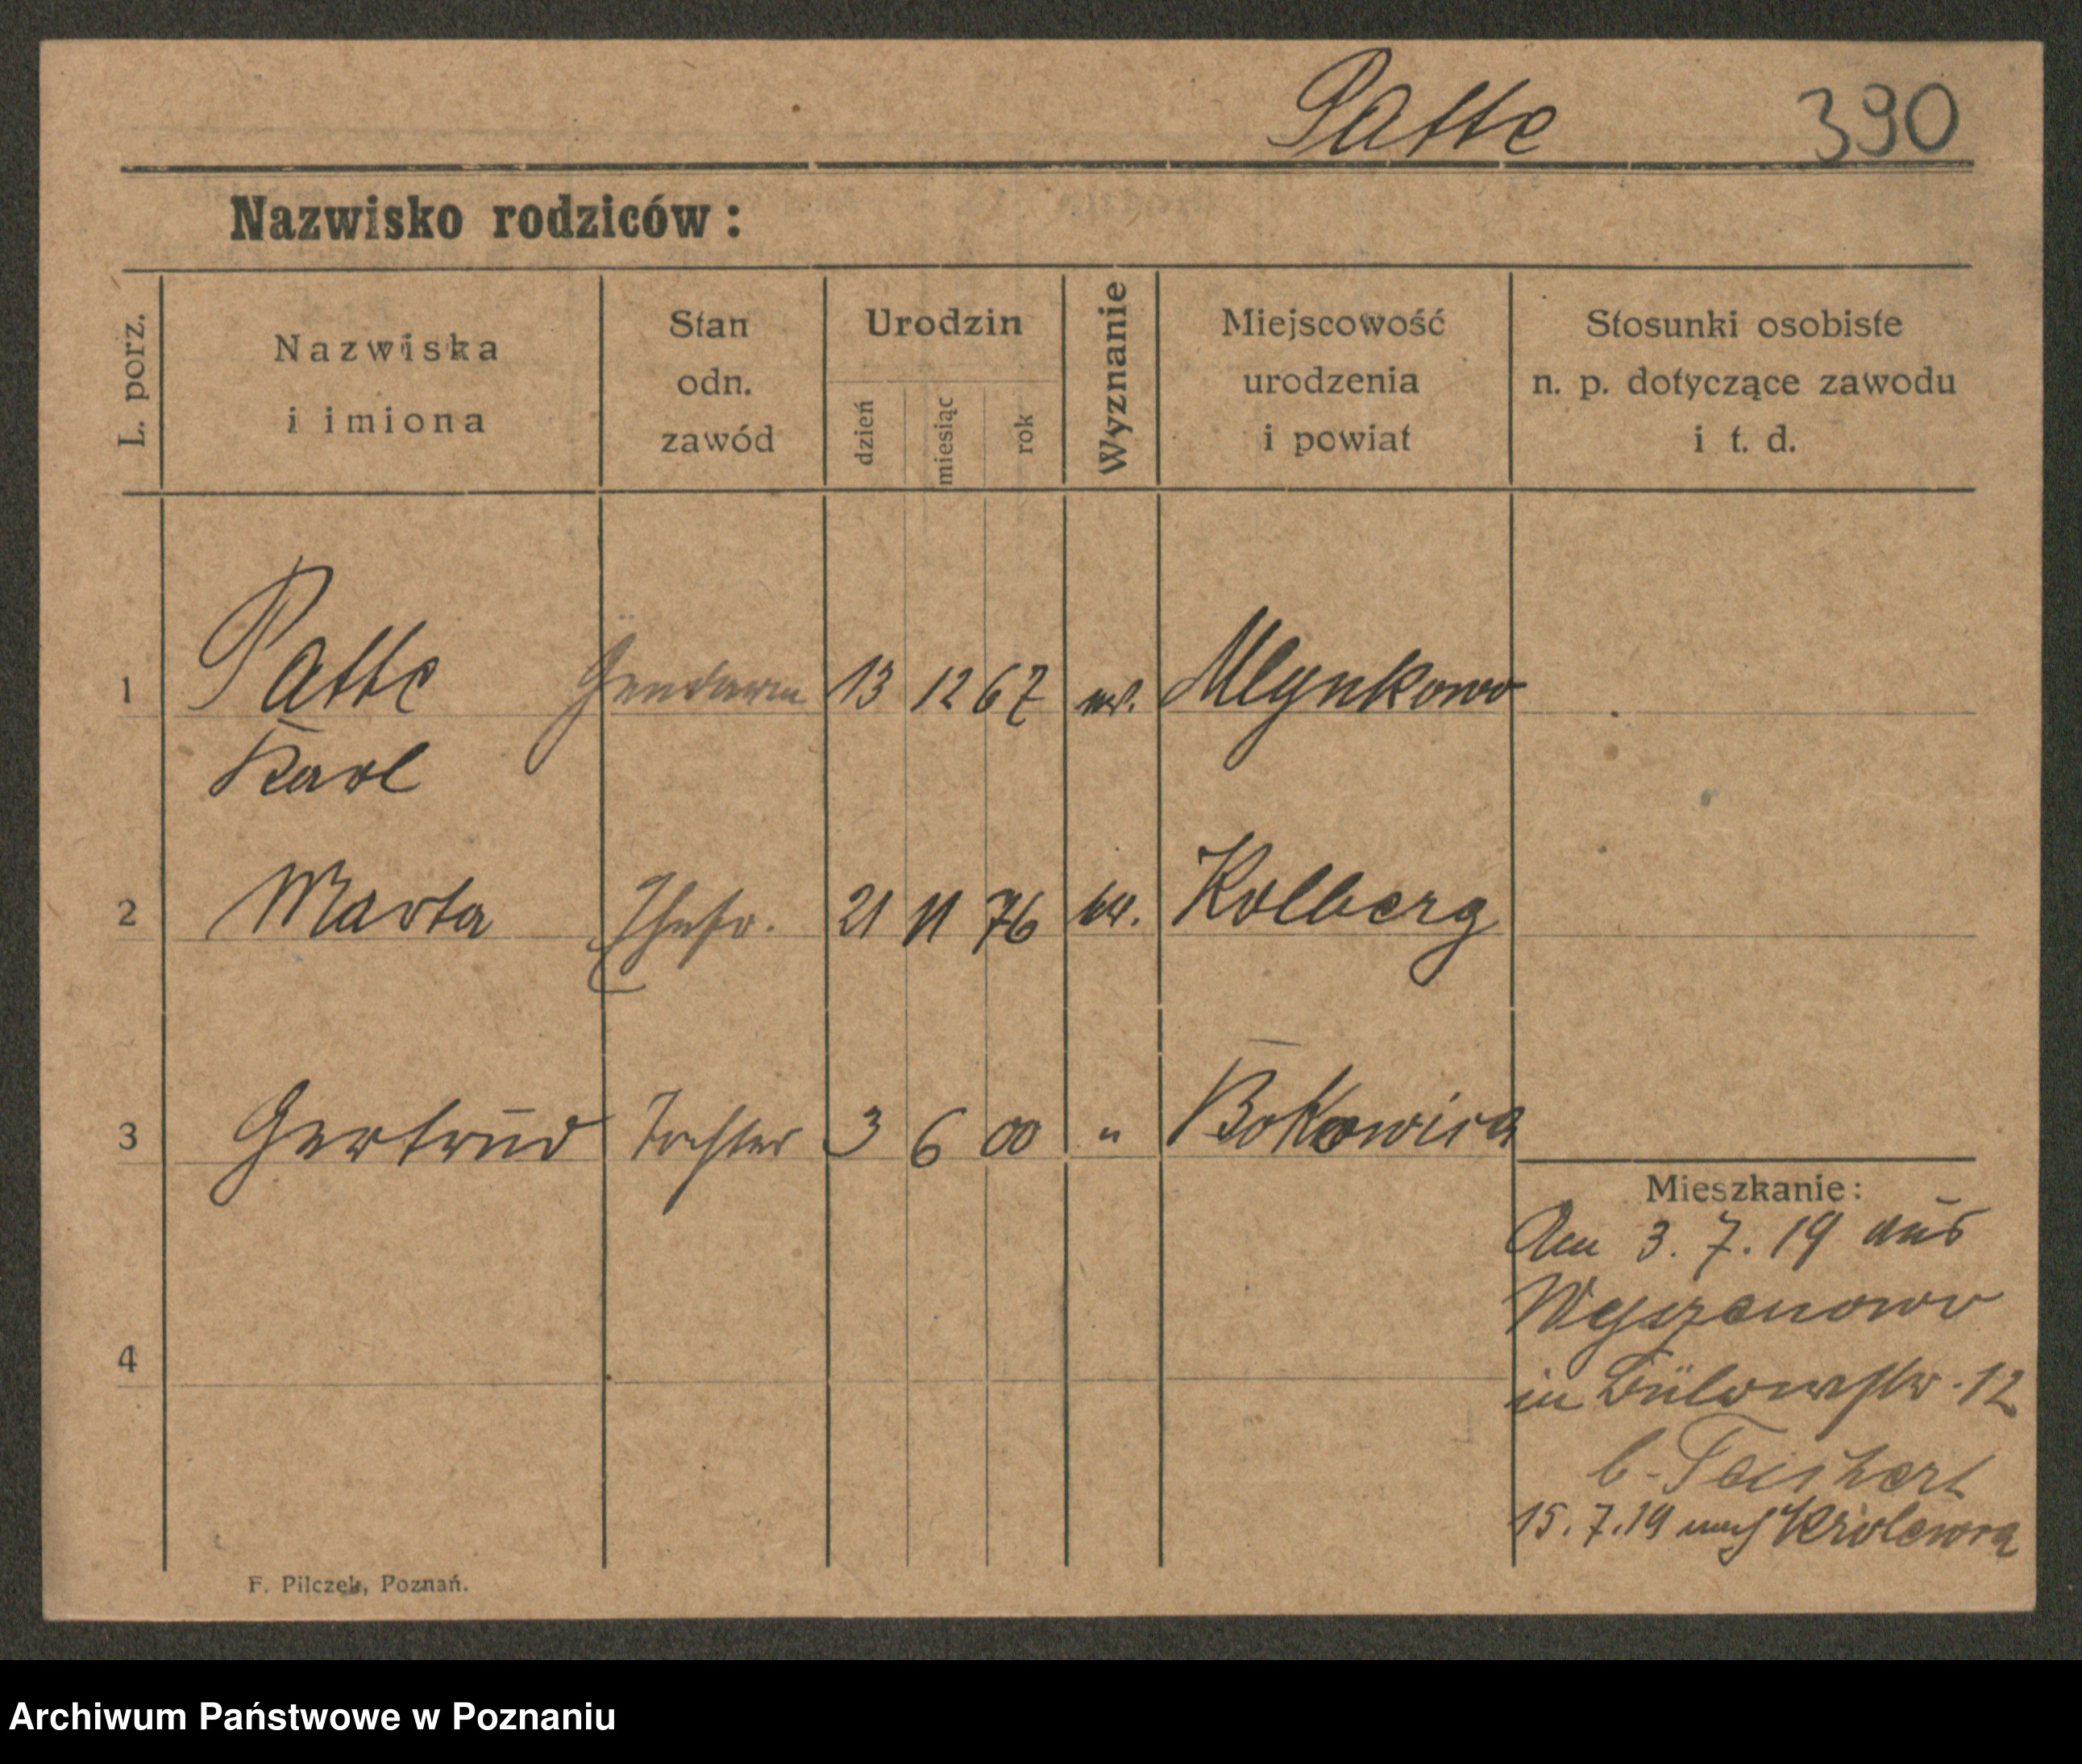 Patte 390
Nazwisko rodziców:
L. porz. Nazwiska i imiona Stan odn. zawód Urodzin dzień miesiąc rok Wyznanie Miejscowość urodzenia i powiat Stosunki osobiste n. p. dotyczące zawodu i t. d.
1 Patte Gendarm 13 12 67 ev. Mlynkowo
Karl
2 Marta Ehefr. 21 11 76 ev. Kolberg
3 Gertrud Tochter 3 6 00 " 
4
Mieszkanie:
Am 3. 7. 19 aus
Wyszanowo
in Bülowstr. 12
b. Teichert
15. 7. 19 nach
F. Pilczek, Poznań.
Archiwum Państwowe w Poznaniu